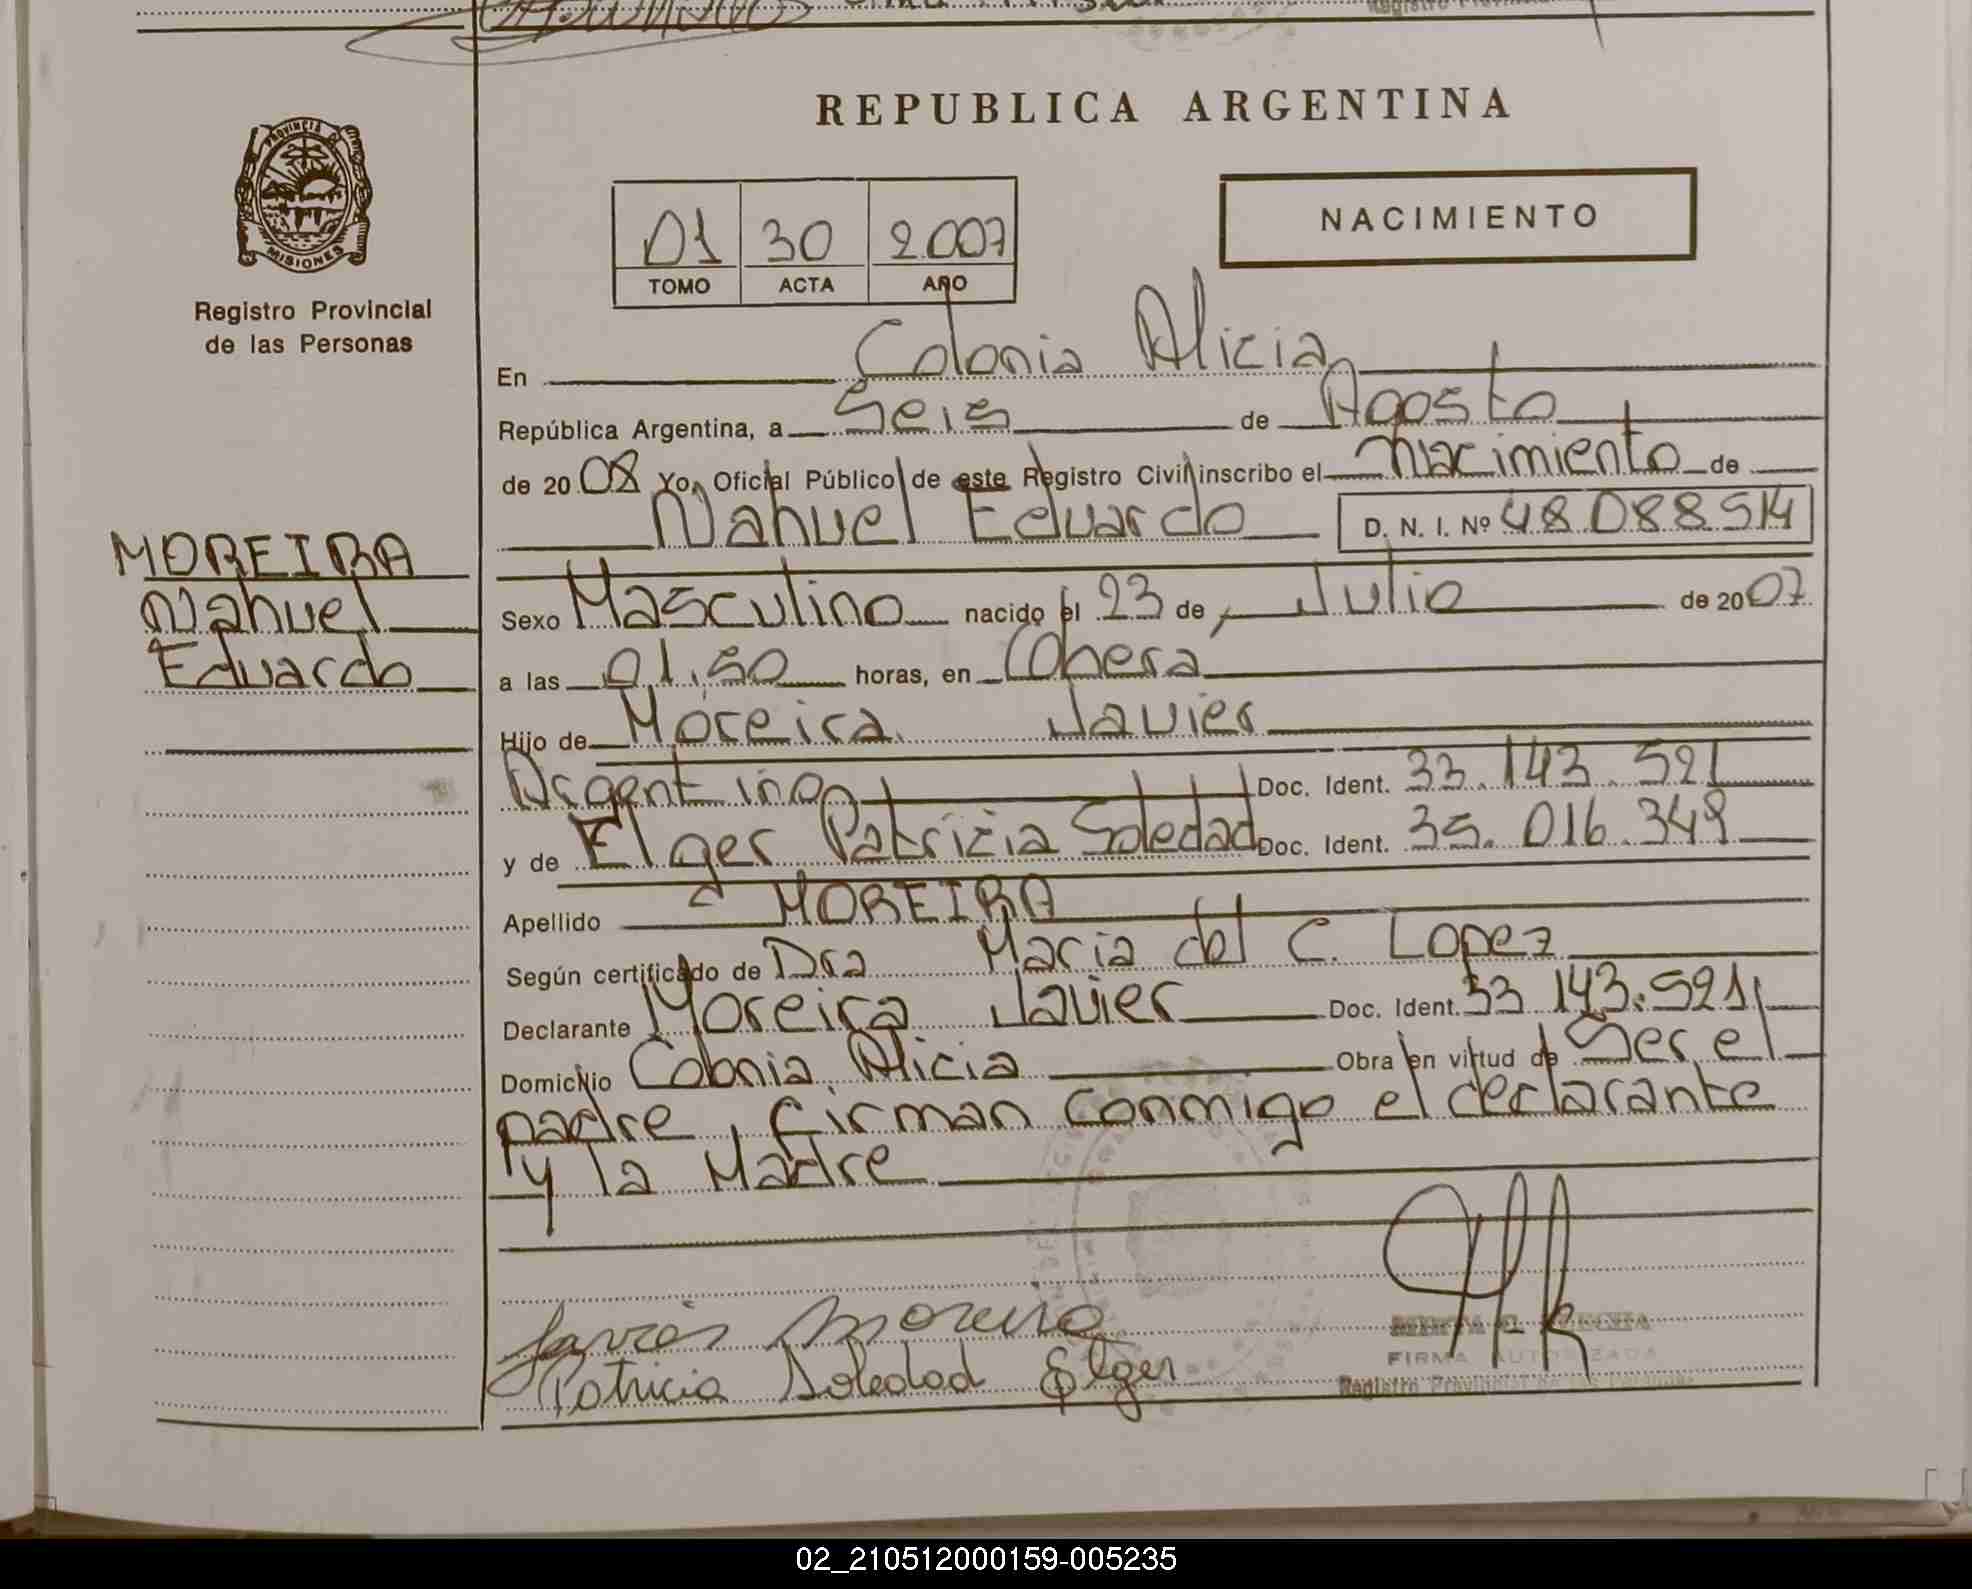 REPUBLICA ARGENTINA
PROVINCIA DE
MISIONES
Registro Provincial
de las Personas
01 30 2007
TOMO ACTA AÑO
NACIMIENTO
En Colonia Alicia
República Argentina, a Seis de Agosto
de 2008 Yo, Oficial Público de este Registro Civil inscribo el Nacimiento de
Nahuel Eduardo D. N. I. Nº 48088514
MOREIRA
Nahuel
Eduardo
Sexo Masculino nacido el 23 de Julio de 2007
a las 01,50 horas, en Obera
Hijo de Moreira Javier
Argentino Doc. Ident. 33.143.521
y de Elger Patrizia Soledad Doc. Ident. 35.016.349
Apellido MOREIRA
Según certificado de Dra Maria del C. Lopez
Declarante Moreira Javier Doc. Ident. 33 143.521
Domicilio Colonia Alicia Obra en virtud de Ser el
padre, firman conmigo el declarante
y la Madre
Javier Moreira
Patricia Soledad Elger
FIRMA AUTORIZADA
Registro Provincial de las Personas
02_210512000159-005235